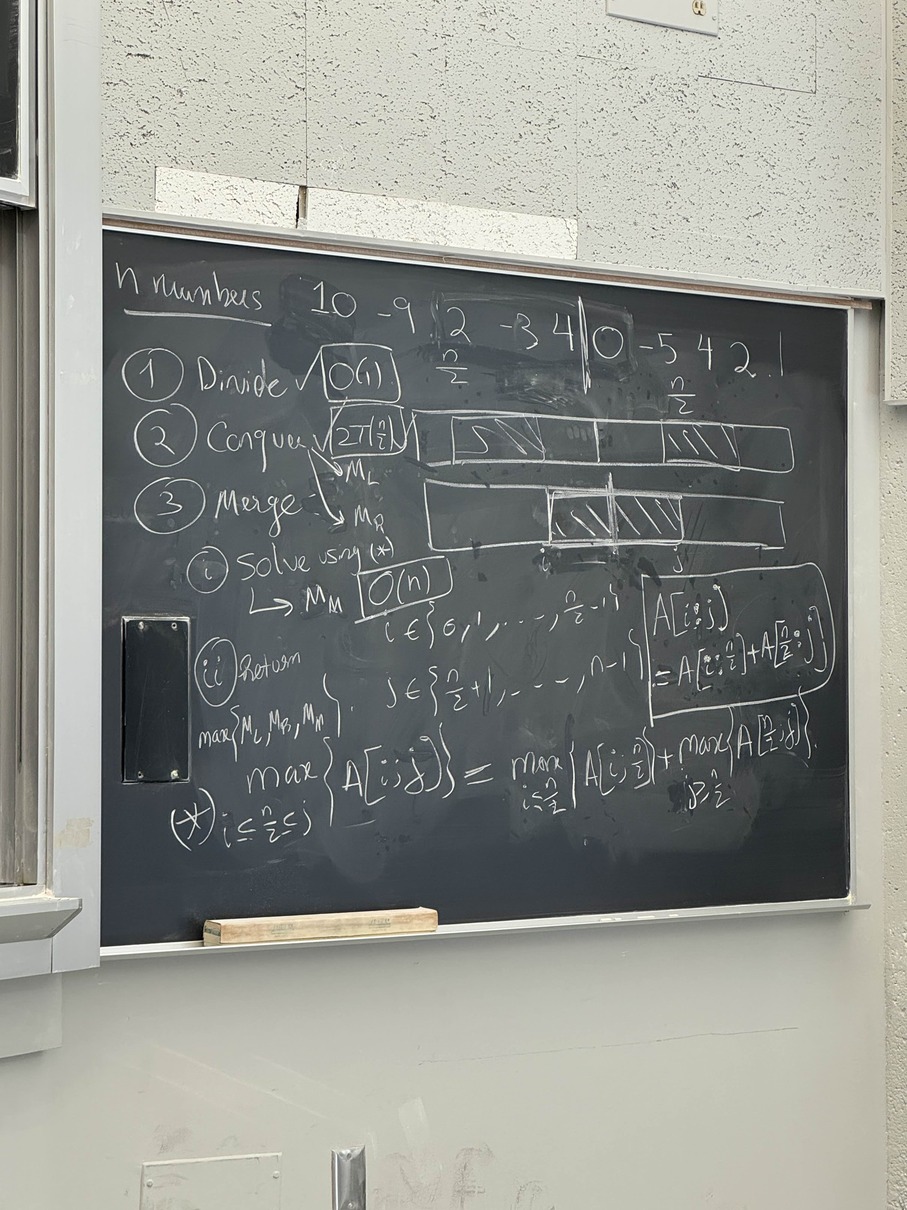 n numbers 10 -9 2 -3 4 | 0 -5 4 2 1
① Divide ✓ O(1) n/2 n/2
② Conquer ✓ 2T(n/2) ✓
→ M_L
③ Merge → M_R
ⓘ Solve using (*)
i j
↳ M_M O(n)
i ∈ {0, 1, ..., n/2 -1}
A[i:j]
= A[i:n/2] + A[n/2:j]
ⓘⓘ Return
max{M_L, M_R, M_M}.
j ∈ {n/2 +1, ..., n-1}
(*) max i≤n/2≤j {A[i:j]} = max i≤n/2 {A[i:n/2]} + max j≥n/2 {A[n/2:j]}.